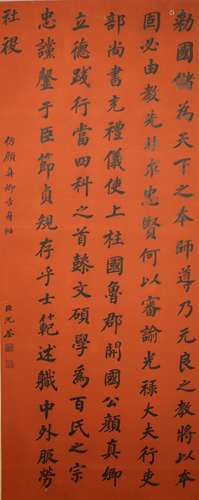 勅國儲為天下之本師導乃元良之教將以本
固必由教先非求忠賢何以審諭光祿大夫行吏
部尚書充禮儀使上柱國魯郡開國公顏真卿
立德踐行當四科之首懿文碩學為百氏之宗
忠讜罄于臣節貞規存乎士範述職中外服勞
社稷
仿顏真卿告身帖
臣沈荃